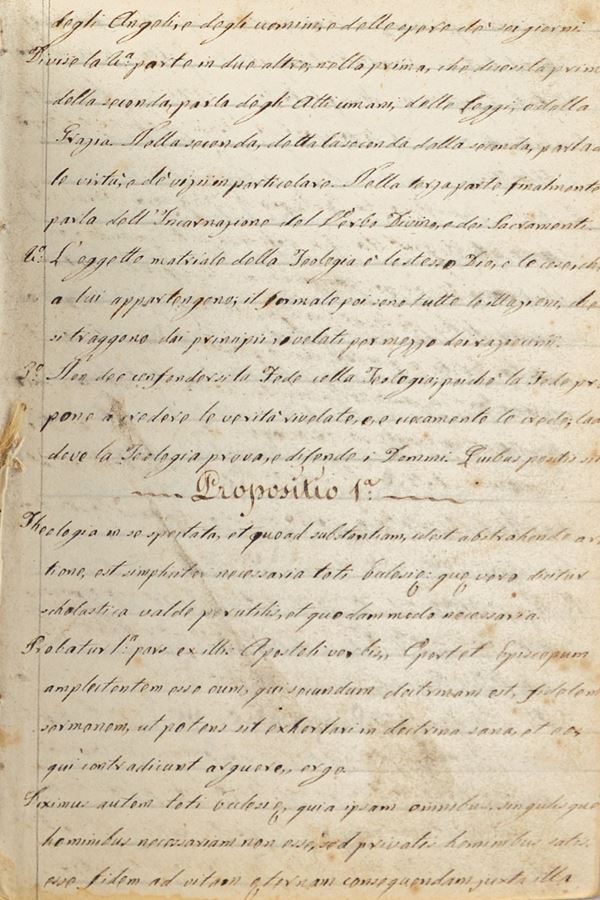 degli Angeli, e degli uomini, e delle opere de' sei giorni.
Divise la 2ª parte in due altre, nella prima, che dicesi la prim
della seconda, parla degli Atti umani, delle Leggi, e della
Grazia. Nella seconda, detta la seconda della seconda, parla d
le virtù, e de' vizii in particolare. Nella terza parte finalmente
parla dell'Incarnazione del Verbo Divino, e dei Sacramenti.
2º L'oggetto matriale della Teologia è lo stesso Dio, e le cose, ch
a lui appartengono; il formale poi sono tutte le illazioni, che
si traggono dai principii rivelati per mezzo dei raziocinii.
3º Non dee confondersi la Fede colla Teologia; poiché la Fede pro
pone a credere le verità rivelate, e, e ciecamente le crede; lad
dove la Teologia prova, e difende i Dommi. Quibus positis sit
Propositio 1ª
Theologia in se spectata, et quoad substantiam, idest abstrahendo a
tione, est simpliciter necessaria toti Ecclesię: quę vero dicitur
scholastica valde perutilis, et quodammodo necessaria.
Probatur 1ª pars ex illis Apostoli verbis,, Oportet Episcopum
amplectentem esse eum, qui secundum doctrinam est, fidelem
sermonem, ut potens sit exhortari in doctrina sana, et eos
qui contradicunt arguere,, ergo.
Diximus autem toti Ecclesię, quia ipsam omnibus, singulis que
hominibus necessariam non esse, sed privatis hominibus satis
esse fidem ad vitam ęternam consequendam juxta illa